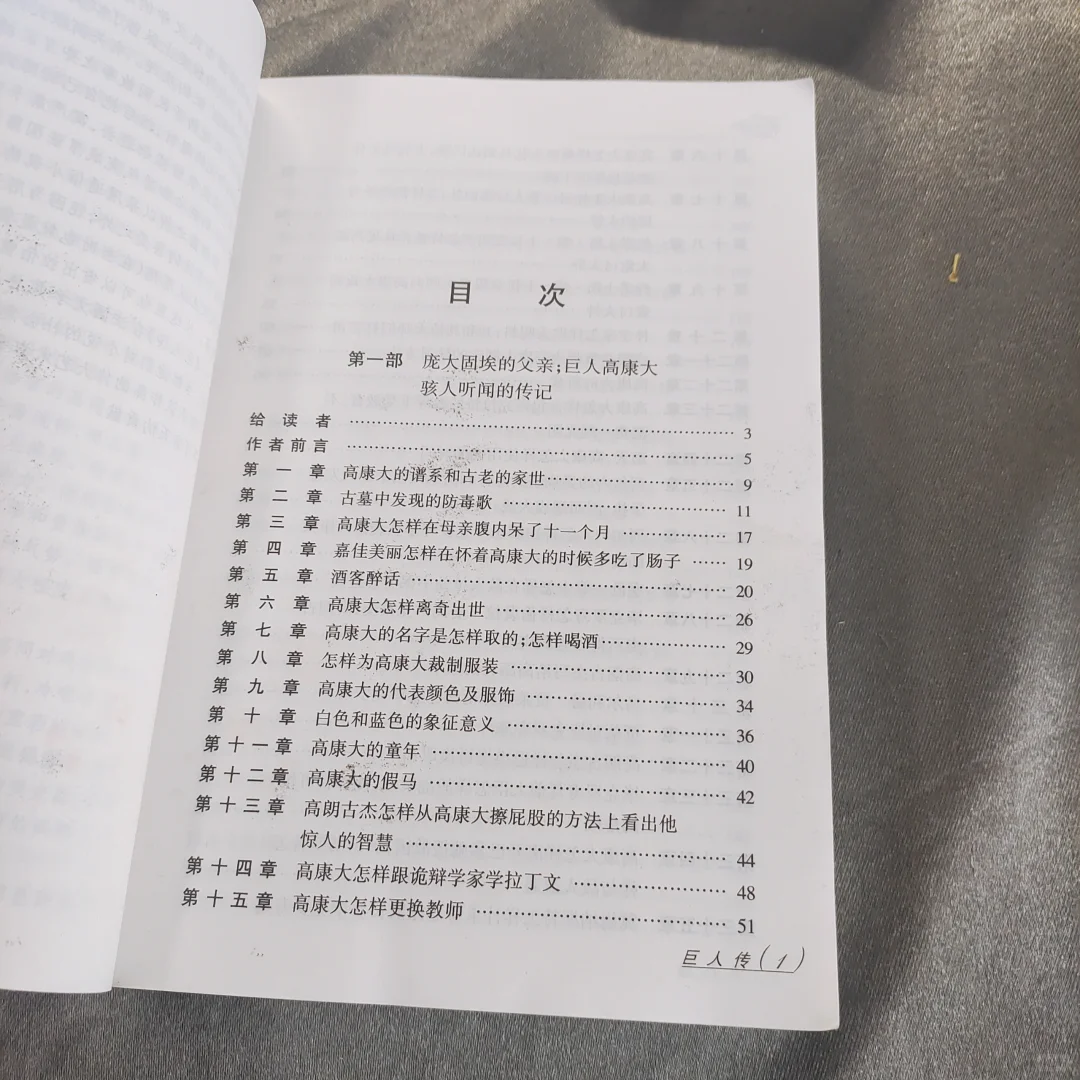 目 次
第一部 庞大固埃的父亲;巨人高康大
骇人听闻的传记
给读者 …… 3
作者前言 …… 5
第一章 高康大的谱系和古老的家世 …… 9
第二章 古墓中发现的防毒歌 …… 11
第三章 高康大怎样在母亲腹内呆了十一个月 …… 17
第四章 嘉佳美丽怎样在怀着高康大的时候多吃了肠子 …… 19
第五章 酒客醉话 …… 20
第六章 高康大怎样离奇出世 …… 26
第七章 高康大的名字是怎样取的;怎样喝酒 …… 29
第八章 怎样为高康大裁制服装 …… 30
第九章 高康大的代表颜色及服饰 …… 34
第十章 白色和蓝色的象征意义 …… 36
第十一章 高康大的童年 …… 40
第十二章 高康大的假马 …… 42
第十三章 高朗古杰怎样从高康大擦屁股的方法上看出他
惊人的智慧 …… 44
第十四章 高康大怎样跟诡辩学家学拉丁文 …… 48
第十五章 高康大怎样更换教师 …… 51
巨人传(1)